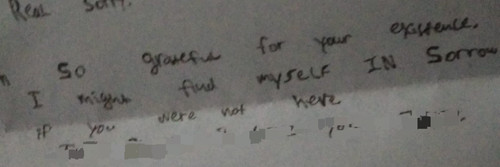 Real Sorry.
So grateful for your existence.
I might find myself IN Sorrow
if you were not here
you